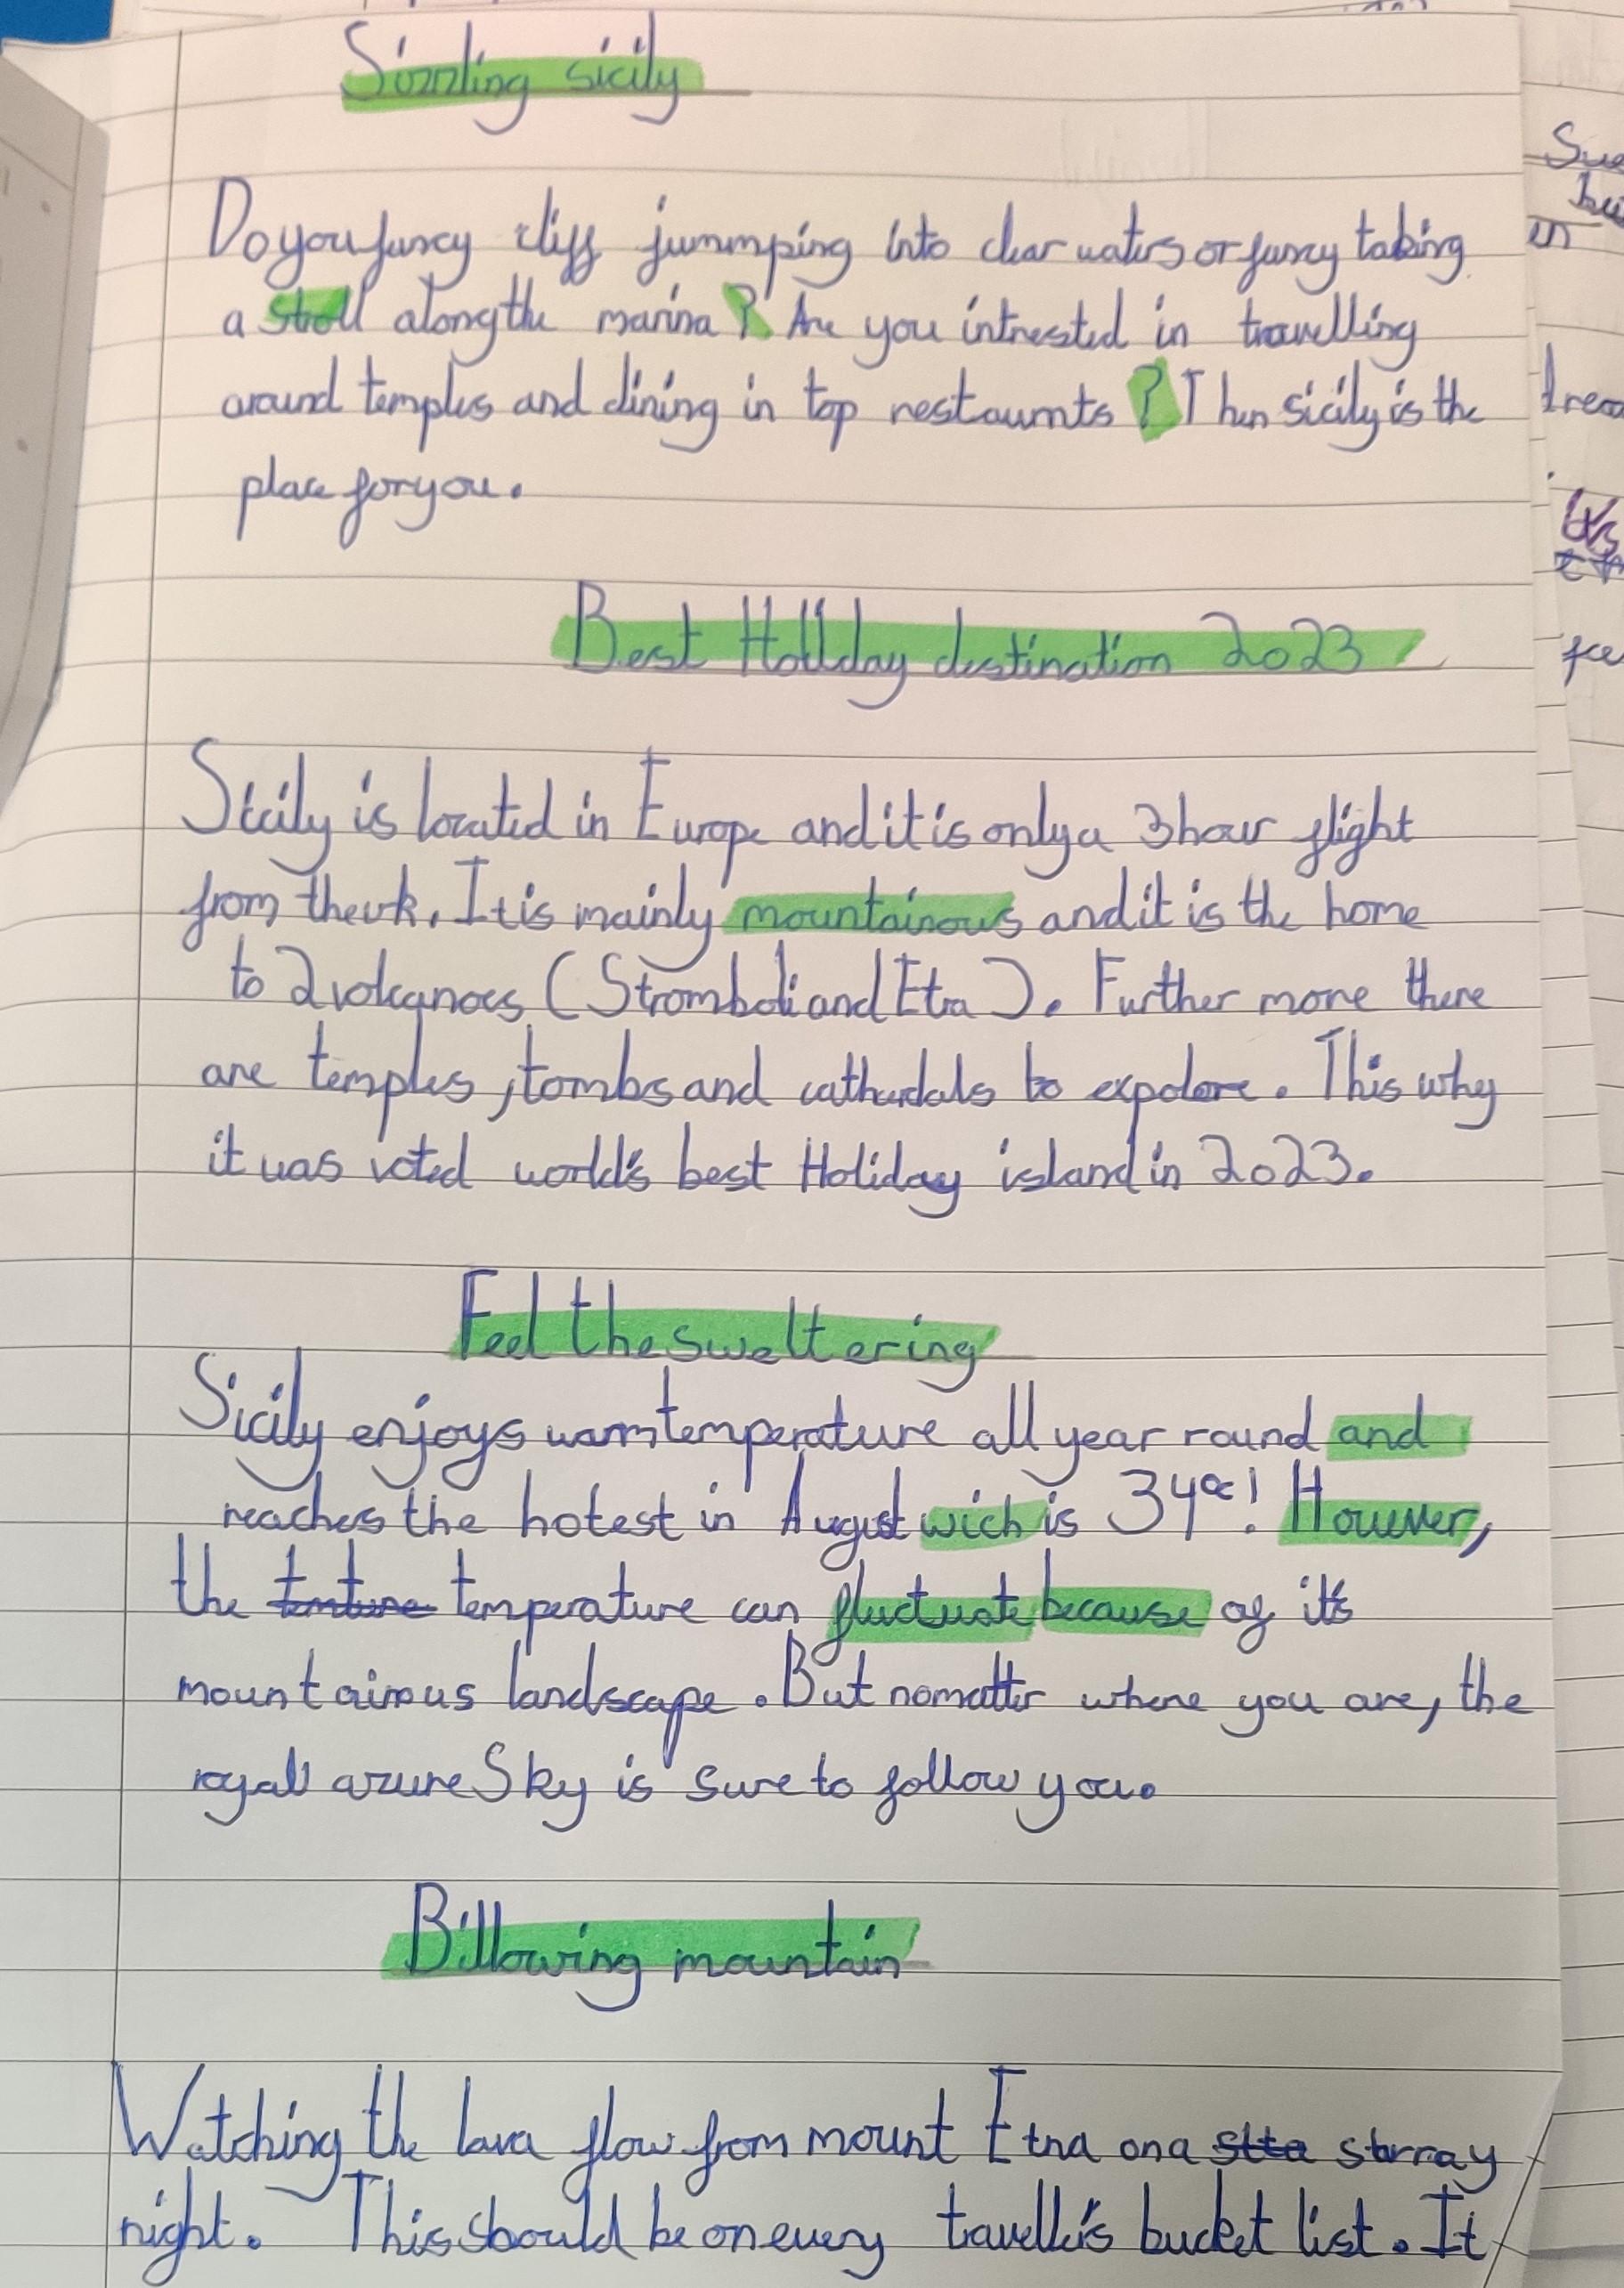 Sizzling sicily
Do you fancy cliff jummping into clear waters or fancy taking
a stroll along the marina? Are you intrested in travelling
around temples and dining in top restaurnts? Then sicily is the
place for you.
Best Holiday destination 2023
Sicily is located in Europe and it is only a 3 hour flight
from the uk. It is mainly mountainous and it is the home
to 2 volcanoes (Stromboli and Etna). Further more there
are temples, tombs and cathedals to expolore. This why
it was voted world's best Holiday island in 2023.
Feel the sweltering
Sicily enjoys warm temperature all year round and
reaches the hotest in August wich is 34°c! However,
the temperature can fluctuate because of it's
mountainous landscape. But no matter where you are, the
royall azure Sky is sure to follow you.
Billowing mountain
Watching the lava flow from mount Etna on a starray
night. This should be on every traveller's bucket list. It